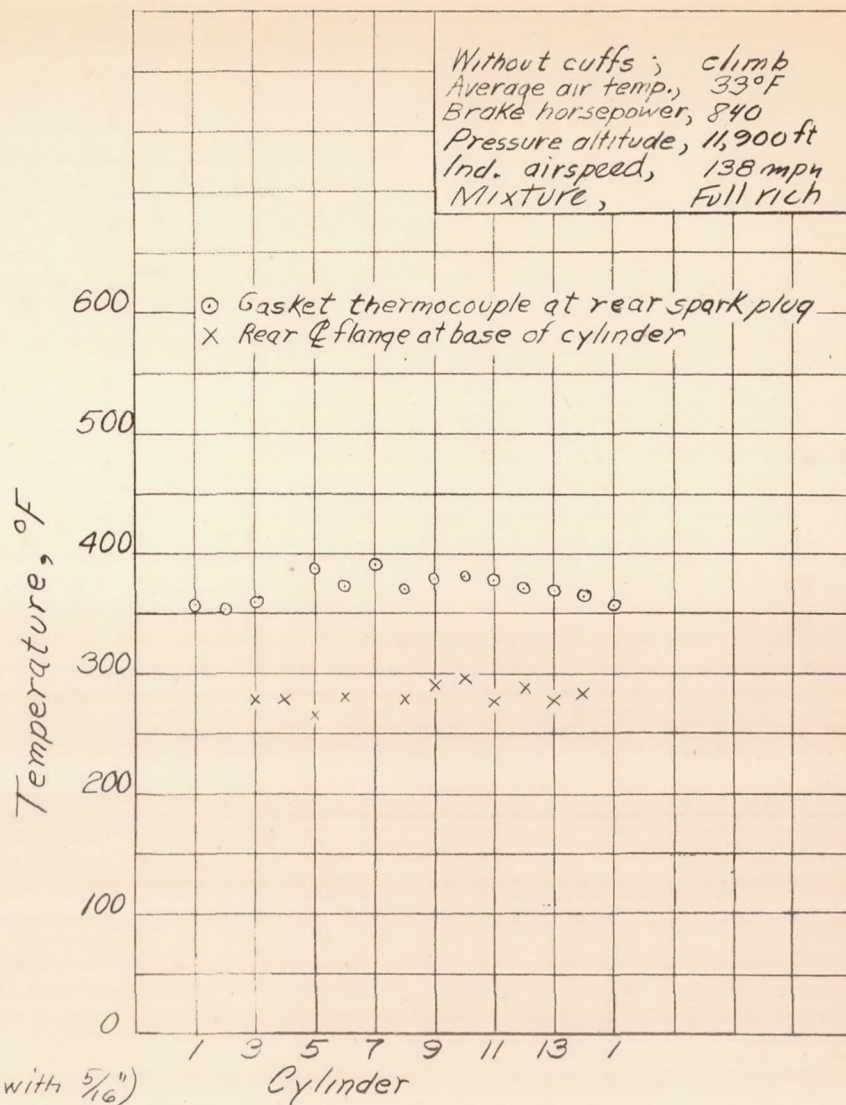 Without cuffs; climb
Average air temp., 33°F
Brake horsepower, 840
Pressure altitude, 11,900 ft
Ind. airspeed, 138 mph
Mixture, Full rich
⊙ Gasket thermocouple at rear spark plug
× Rear ℄ flange at base of cylinder
600
500
400
300
200
100
0
Temperature, °F
1 3 5 7 9 11 13 1
with 5/16")
Cylinder